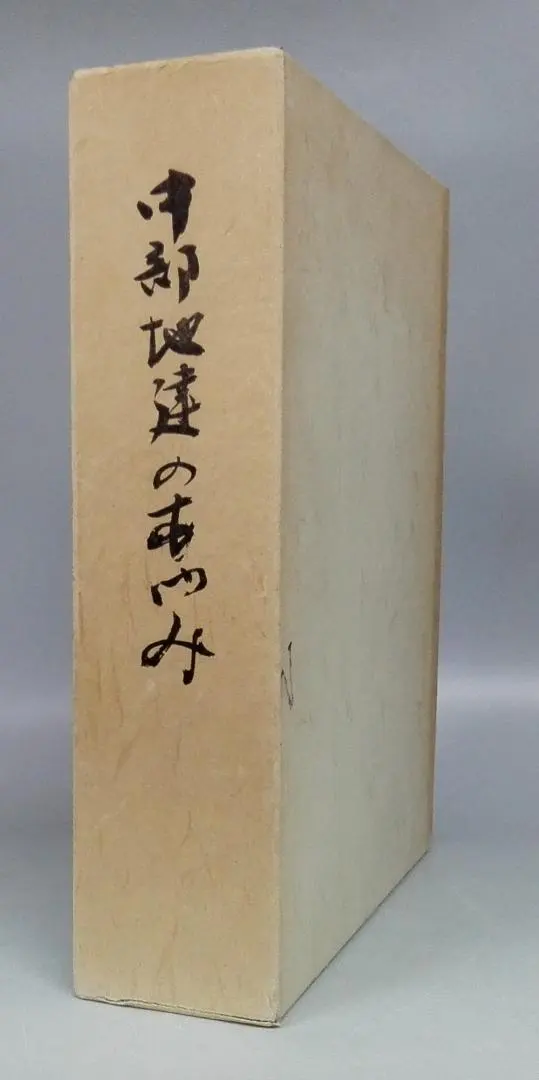 中部地建のあゆみ